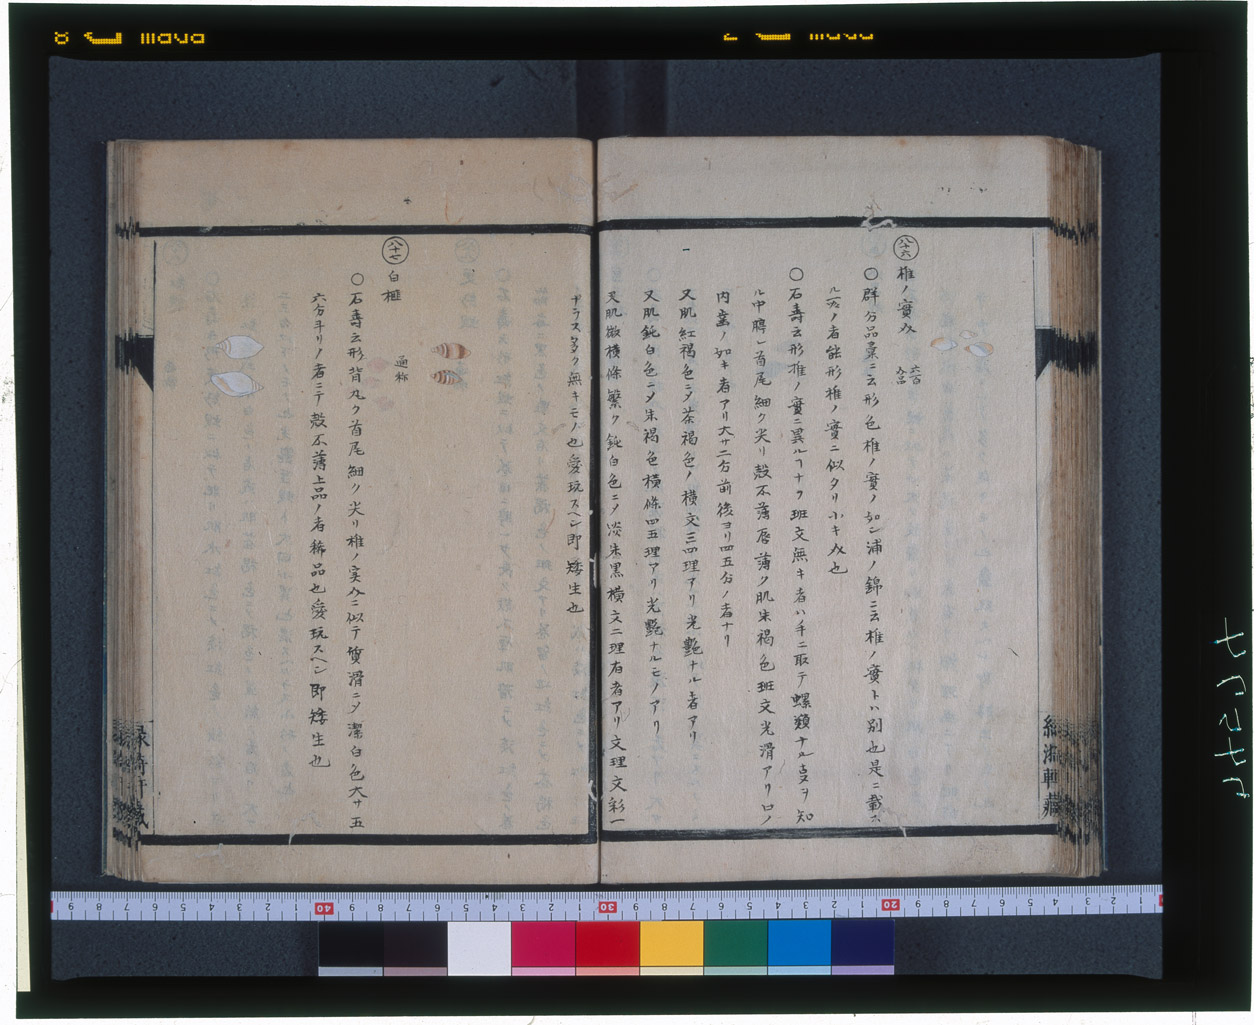 八十六
椎ノ實介
六百
介品
〇群分品彙ニ云形色椎ノ實ノ如シ浦ノ錦ニ云椎ノ實トハ別也是ニ載ス
ル所ノ者能形椎ノ實ニ似タリ小キ介也
〇石壽云形椎ノ實ニ異ルヿナク班文無キ者ハ手ニ取テ螺類ナル支ヲ知
ル中膨レ首尾細ク尖リ殻不薄唇薄ク肌朱褐色班文光滑アリ口ノ
内窒ノ如キ者アリ大サ二分前後ヨリ四五分ノ者ナリ
一
又肌紅褐色ニメ茶褐色ノ横文三四理アリ光艶ナル者アリ
又肌鈍白色ニメ朱褐色横條四五理アリ光艶ナルモノアリ
又肌微横條繁ク鈍白色ニメ淡朱黒横文二理有者アリ文理文彩一
ナラス多ク無キモノ也愛玩スヘシ即矮生也
八十七
白榧
通称
〇石壽云形背丸ク首尾細ク尖リ椎ノ実介ニ似テ質滑ニメ潔白色大サ五
六分斗リノ者ニテ殻不薄上品ノ者稀品也愛玩スヘシ即矮生也
9 8 7 6 5 4 3 2 1 40 9 8 7 6 5 4 3 2 1 30 9 8 7 6 5 4 3 2 1 20 9 8 7 6 5 4 3 2 1